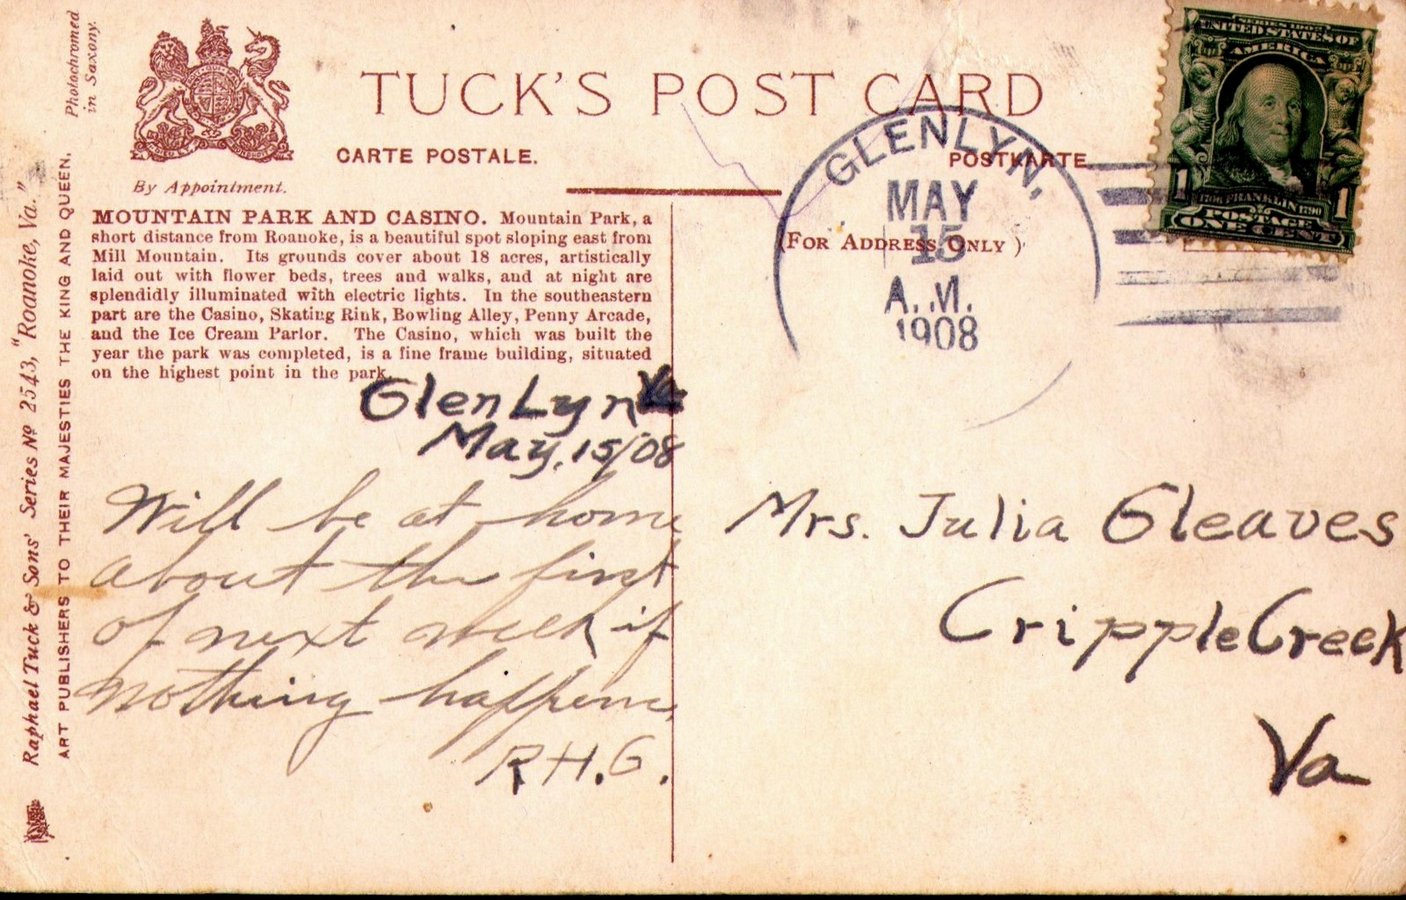 Photochromed
in Saxony.
TUCK'S POST CARD
CARTE POSTALE.
POSTKARTE
By Appointment.
(FOR ADDRESS ONLY )
MOUNTAIN PARK AND CASINO. Mountain Park, a
short distance from Roanoke, is a beautiful spot sloping east from
Mill Mountain. Its grounds cover about 18 acres, artistically
laid out with flower beds, trees and walks, and at night are
splendidly illuminated with electric lights. In the southeastern
part are the Casino, Skating Rink, Bowling Alley, Penny Arcade,
and the Ice Cream Parlor. The Casino, which was built the
year the park was completed, is a fine frame building, situated
on the highest point in the park.
Raphael Tuck & Sons' Series Nº 2543, "Roanoke, Va."
ART PUBLISHERS TO THEIR MAJESTIES THE KING AND QUEEN.
GLENLYN,
MAY
15
A.M.
1908
SERIES 1902
UNITED STATES OF
AMERICA
1 1
1706 FRANKLIN 1790
POSTAGE
ONE CENT
GlenLyn Va
May, 15/08
Will be at home
about the first
of next week if
nothing happens.
R.H.G.
Mrs. Julia Gleaves
Cripple Creek
Va